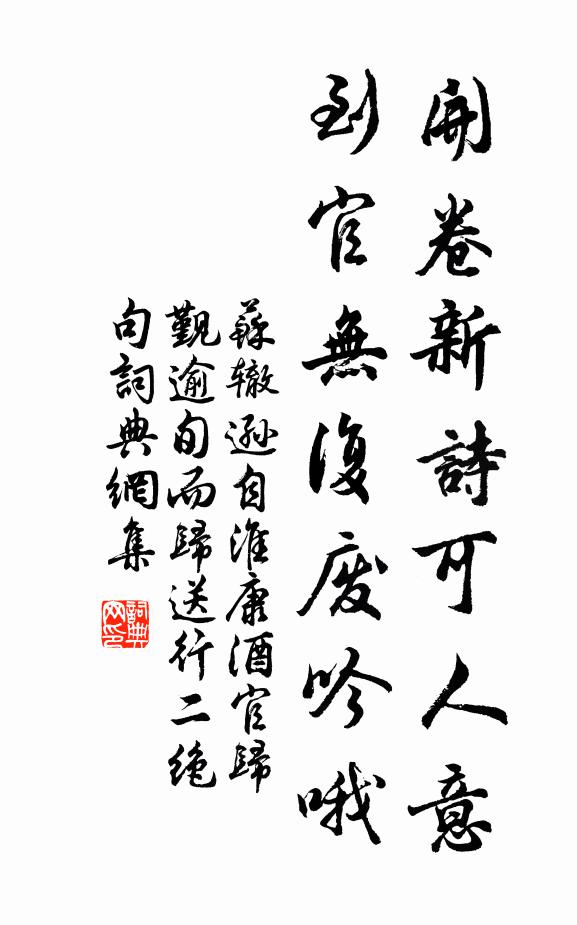 開卷新詩可人意
到官無復廢吟哦
蘇辙遜自淮康酒官歸
觐逾旬而歸送行二绝
句詞典網集
詞典网印